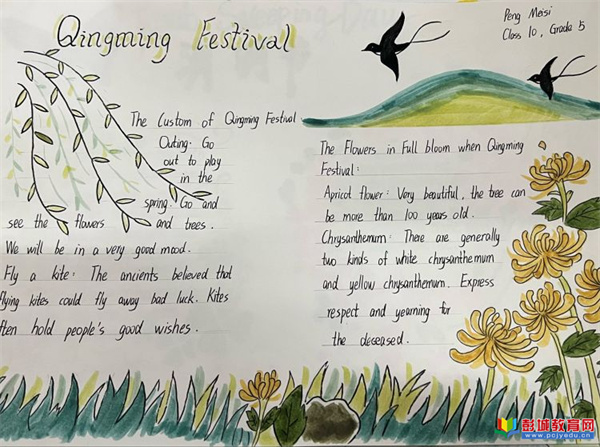 Qingming Festival
Peng Meisi
Class 10, Grade 5
The Custom of Qingming Festival:
Outing: Go
out to play
in the
spring. Go and
see the flowers and trees.
We will be in a very good mood.
Fly a kite: The ancients believed that
flying kites could fly away bad luck. Kites
ften hold people's good wishes.
The Flowers in Full bloom when Qingming
Festival:
Apricot flower: Very beautiful, the tree can
be more than 100 years old.
Chrysanthemum: There are generally
two kinds of white chrysanthemum
and yellow chrysanthemum. Express
respect and yearning for
the deceased.
彭城教育网
www.pcjyedu.cn